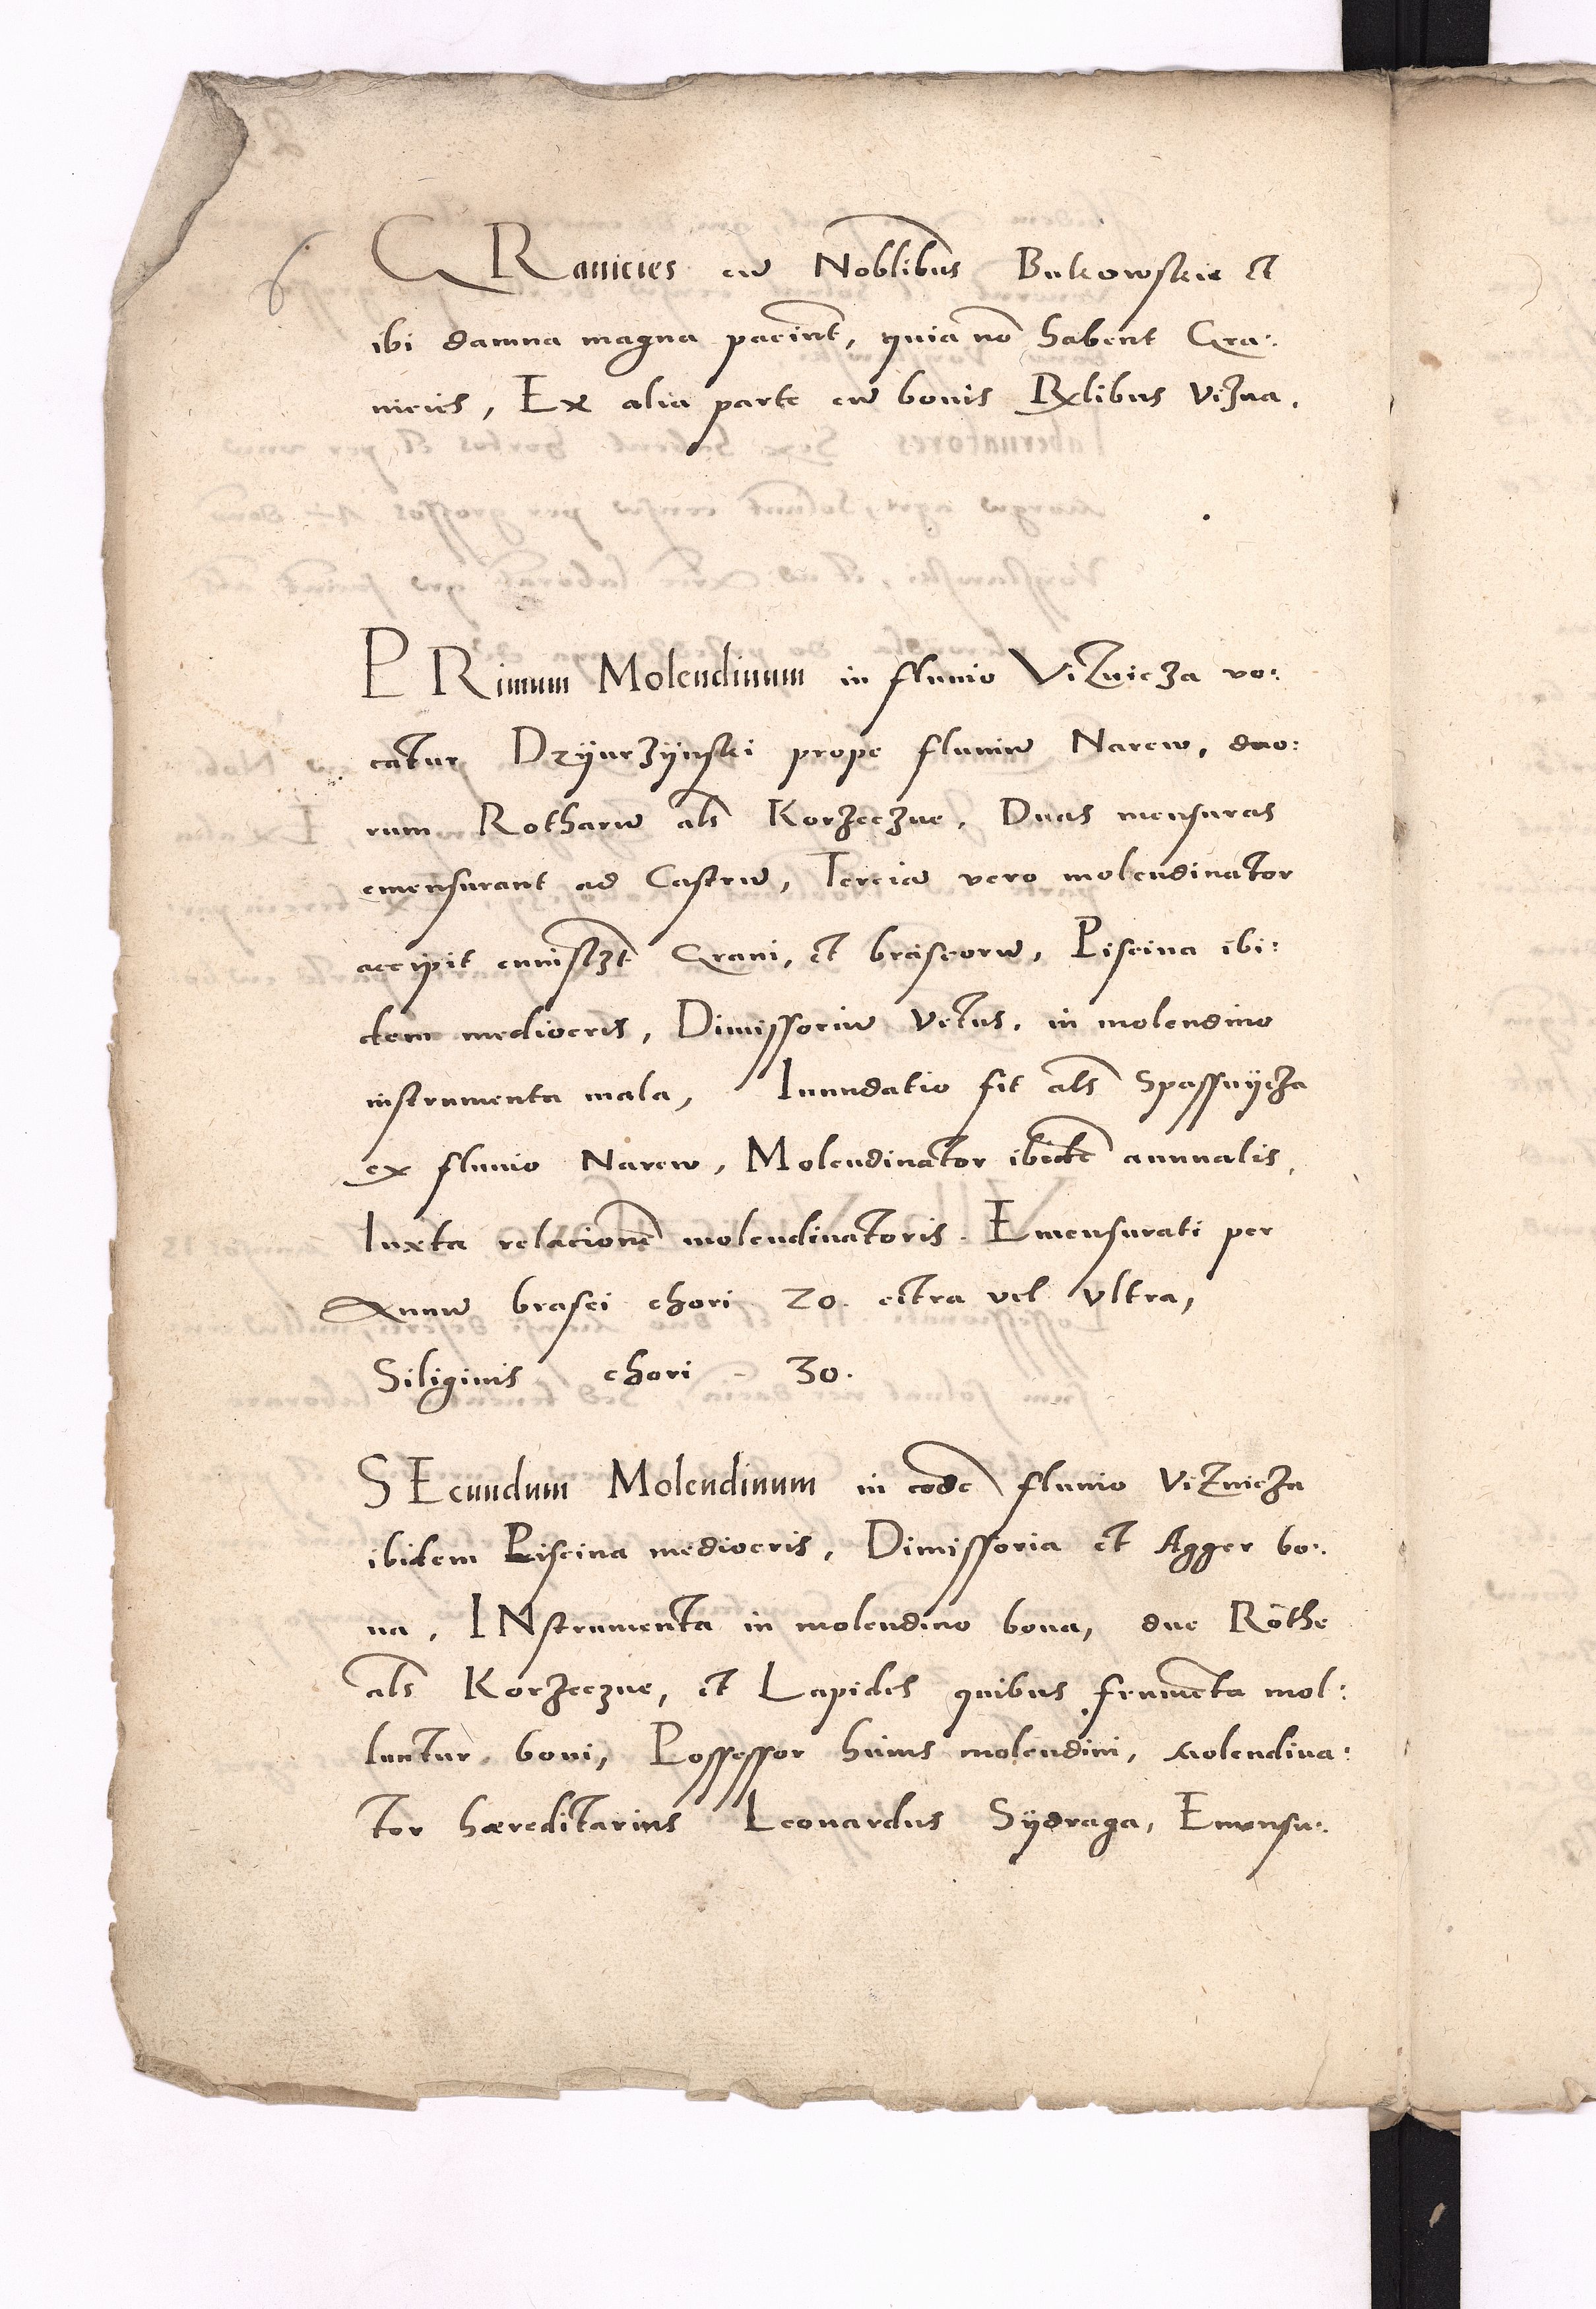 6
GRanicies cu̅ Nob̅libus Bukowskie et
ibi damna magna paciu̅t, quia no̅ habent Gra:
nicies, Ex alia parte cu̅ bonis R̅x̅libus Vizna.
PRimum Molendinum in fluuio Viznicza vo:
catur Dzÿurzÿnski prope fluuiu̅ Narew, duo:
rum Rotharu̅ al̅s Korzeczne, Duas mensuras
emensurant ad Castru̅, Tercia̅ vero molendinator
accipit Grani, et braseoru̅, Piscina ibi:
dem mediocris, Dimissoriu̅ vetus, in molendino
instrumenta mala, Inundatio fit al̅s Spassnÿcza
ex fluuio Narew, Molendinator ibide̅ annualis,
Iuxta relacione̅ molendinatoris. Emensurati per
Annu̅ brasei chori 20. citra vel vltra,
Siliginis chori - 30.
SEcundum Molendinum in eode̅ fluuio Viznicza
ibidem Piscina mediocris, Dimissoria et Agger bo:
na, INstrumenta in molendino bona, due Rothe
al̅s Korzeczne, et Lapides quibus frume̅ta mol:
luntur boni, Possessor huius molendini, Molendina:
tor hæreditarius Leonardus Sÿdraga, Emensu: